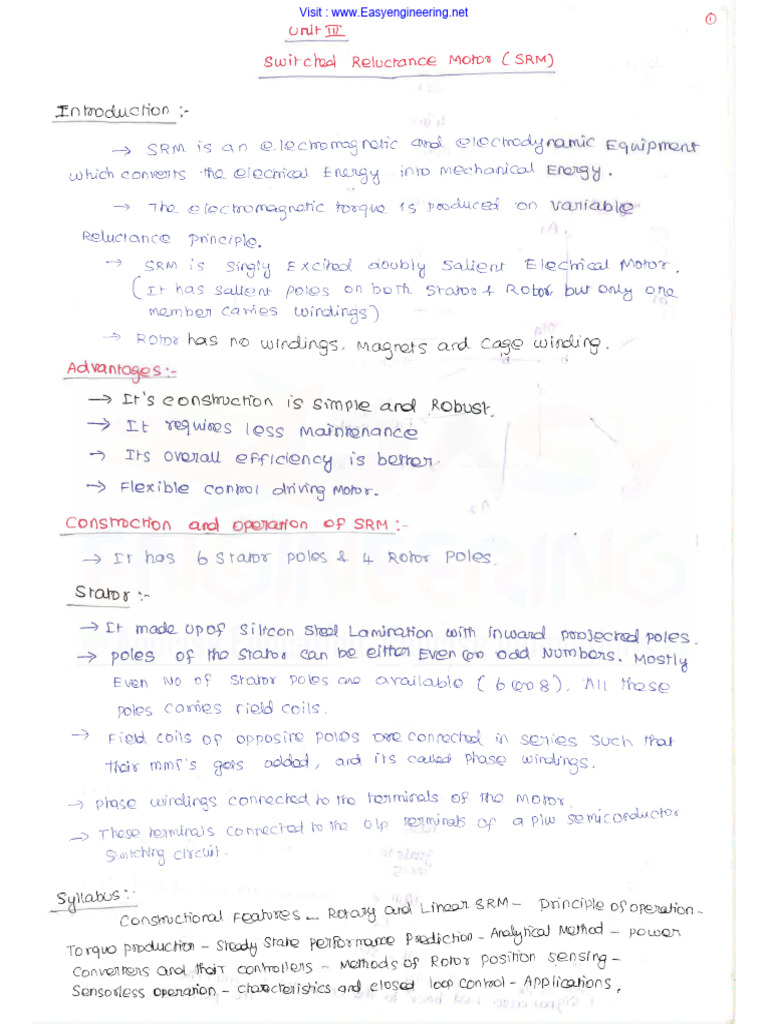 Visit : www.Easyengineering.net
1
Unit III
Switched Reluctance Motor (SRM)
Introduction :-
→ SRM is an electromagnetic and electrodynamic Equipment
which converts the electrical Energy into mechanical Energy.
→ The electromagnetic torque is produced on variable
Reluctance principle.
→ SRM is Singly Excited doubly Salient Electrical Motor.
(It has salient poles on both stator & Rotor, but only one
member carries windings)
→ Rotor has no windings, Magnets and cage winding.
Advantages:-
→ It's construction is simple and Robust.
→ It requires less maintenance
→ Its overall efficiency is better.
→ Flexible control driving Motor.
Construction and operation of SRM :-
→ It has 6 Stator poles & 4 Rotor Poles.
Stator :-
→ It made up of Silicon Steel Lamination with inward projected poles.
→ poles of the stator can be either Even (or) odd Numbers. Mostly
Even No of stator poles are available (6 (or) 8). All these
poles carries field coils.
→ Field coils of opposite poles are connected in series such that
their mmf's gets added, and its called Phase windings.
→ phase windings connected to the terminals of the Motor.
→ These terminals connected to the o/p terminals of a p/w semiconductor
Switching circuit.
Syllabus:-
Constructional Features – Rotary and Linear SRM – Principle of operation –
Torque production – Steady State performance Prediction – Analytical Method – power
Converters and their controllers – Methods of Rotor position sensing –
Sensorless operation – characteristics and closed loop control – Applications.